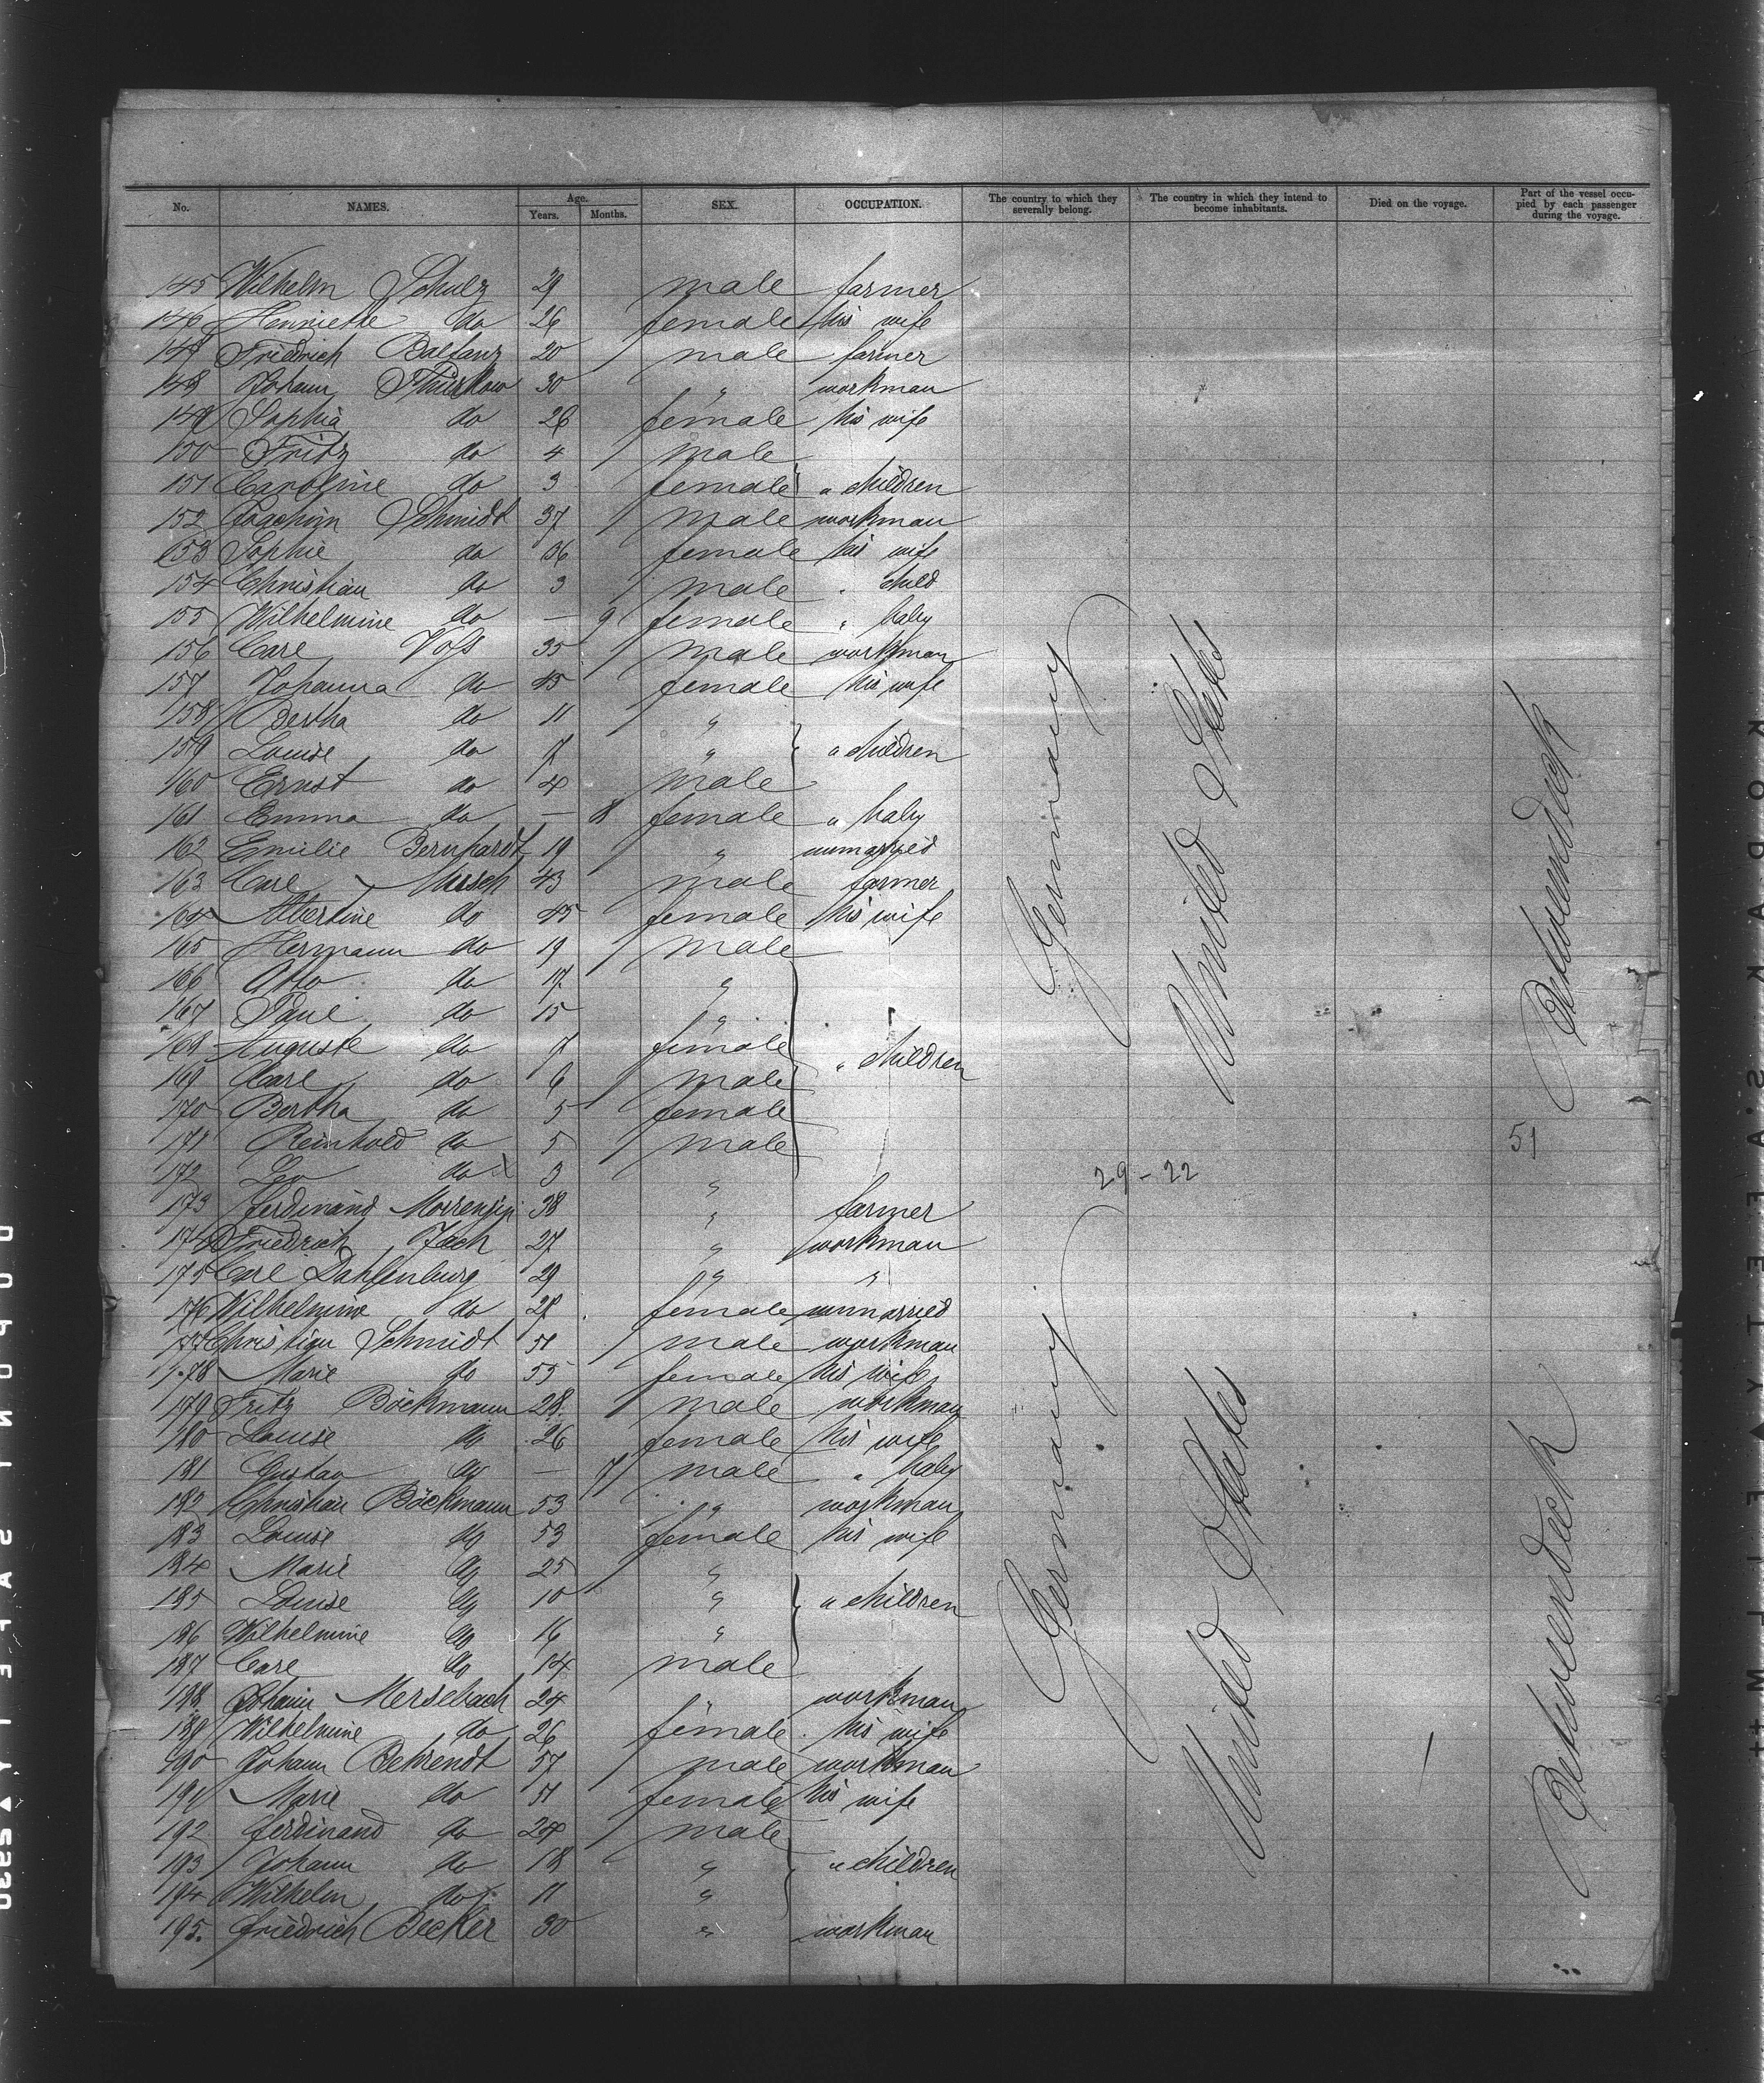 No. NAMES. Age. Years. Months. SEX. OCCUPATION. The country to which they severally belong. The country in which they intend to become inhabitants. Died on the voyage. Part of the vessel occupied by each passenger during the voyage.
145 Wilhelm Schulz 29 male farmer
146 Henriette do 26 female his wife
147 Friedrich Balfanz 20 male farmer
148 Johann 30 " workman
149 Sophia do 26 female his wife
150 Fritz do 4 male
151 Caroline do 3 female " children
152 Joachim Schmidt 37 male workman
153 Sophie do 36 female his wife
154 Christian do 3 male " child
155 Wilhelmine do — 9 female " baby
156 Carl Voss 35 male workman
157 Johanna do 45 female his wife
158 Bertha do 11 "
159 Louise do 7 " " children
160 Ernst do 4 male
161 Emma do — 8 female " baby
162 Emilie Bernhardt 19 " unmarried
163 Carl 43 male farmer
164 Albertine do 45 female his wife
165 Hermann do 19 male
166 Otto do 17 "
167 Paul do 15 "
168 Auguste do 7 female " children
169 Carl do 6 male
170 Bertha do 5 female
171 Reinhold do 5 male
172 Leo do 3 "
173 Ferdinand 38 " farmer
174 Friedrich Jach 27 " workman
175 Carl Dahlenburg 29 " "
176 Wilhelmine do female unmarried
177 Christian Schmidt 51 male workman
178 Marie do 55 female his wife
179 Fritz Böckmann 28 male workman
180 Louise do 26 female his wife
181 Gustav do — 7 male " baby
182 Christian Böckmann 53 " workman
183 Louise do 53 female his wife
184 Marie do 25 "
185 Louise do 10 " " children
186 Wilhelmine do 16 "
187 Carl do 14 male
188 Johann Mersebach 24 " workman
189 Wilhelmine do 26 female his wife
190 Johann Behrendt 57 male workman
191 Marie do 51 female his wife
192 Ferdinand do 24 male
193 Johann do 18 " " children
194 Wilhelm do 11 "
195. Friedrich Becker 30 " workman
Germany
United States
Betweendeck
51
29-22
Germany
United States
Betweendeck